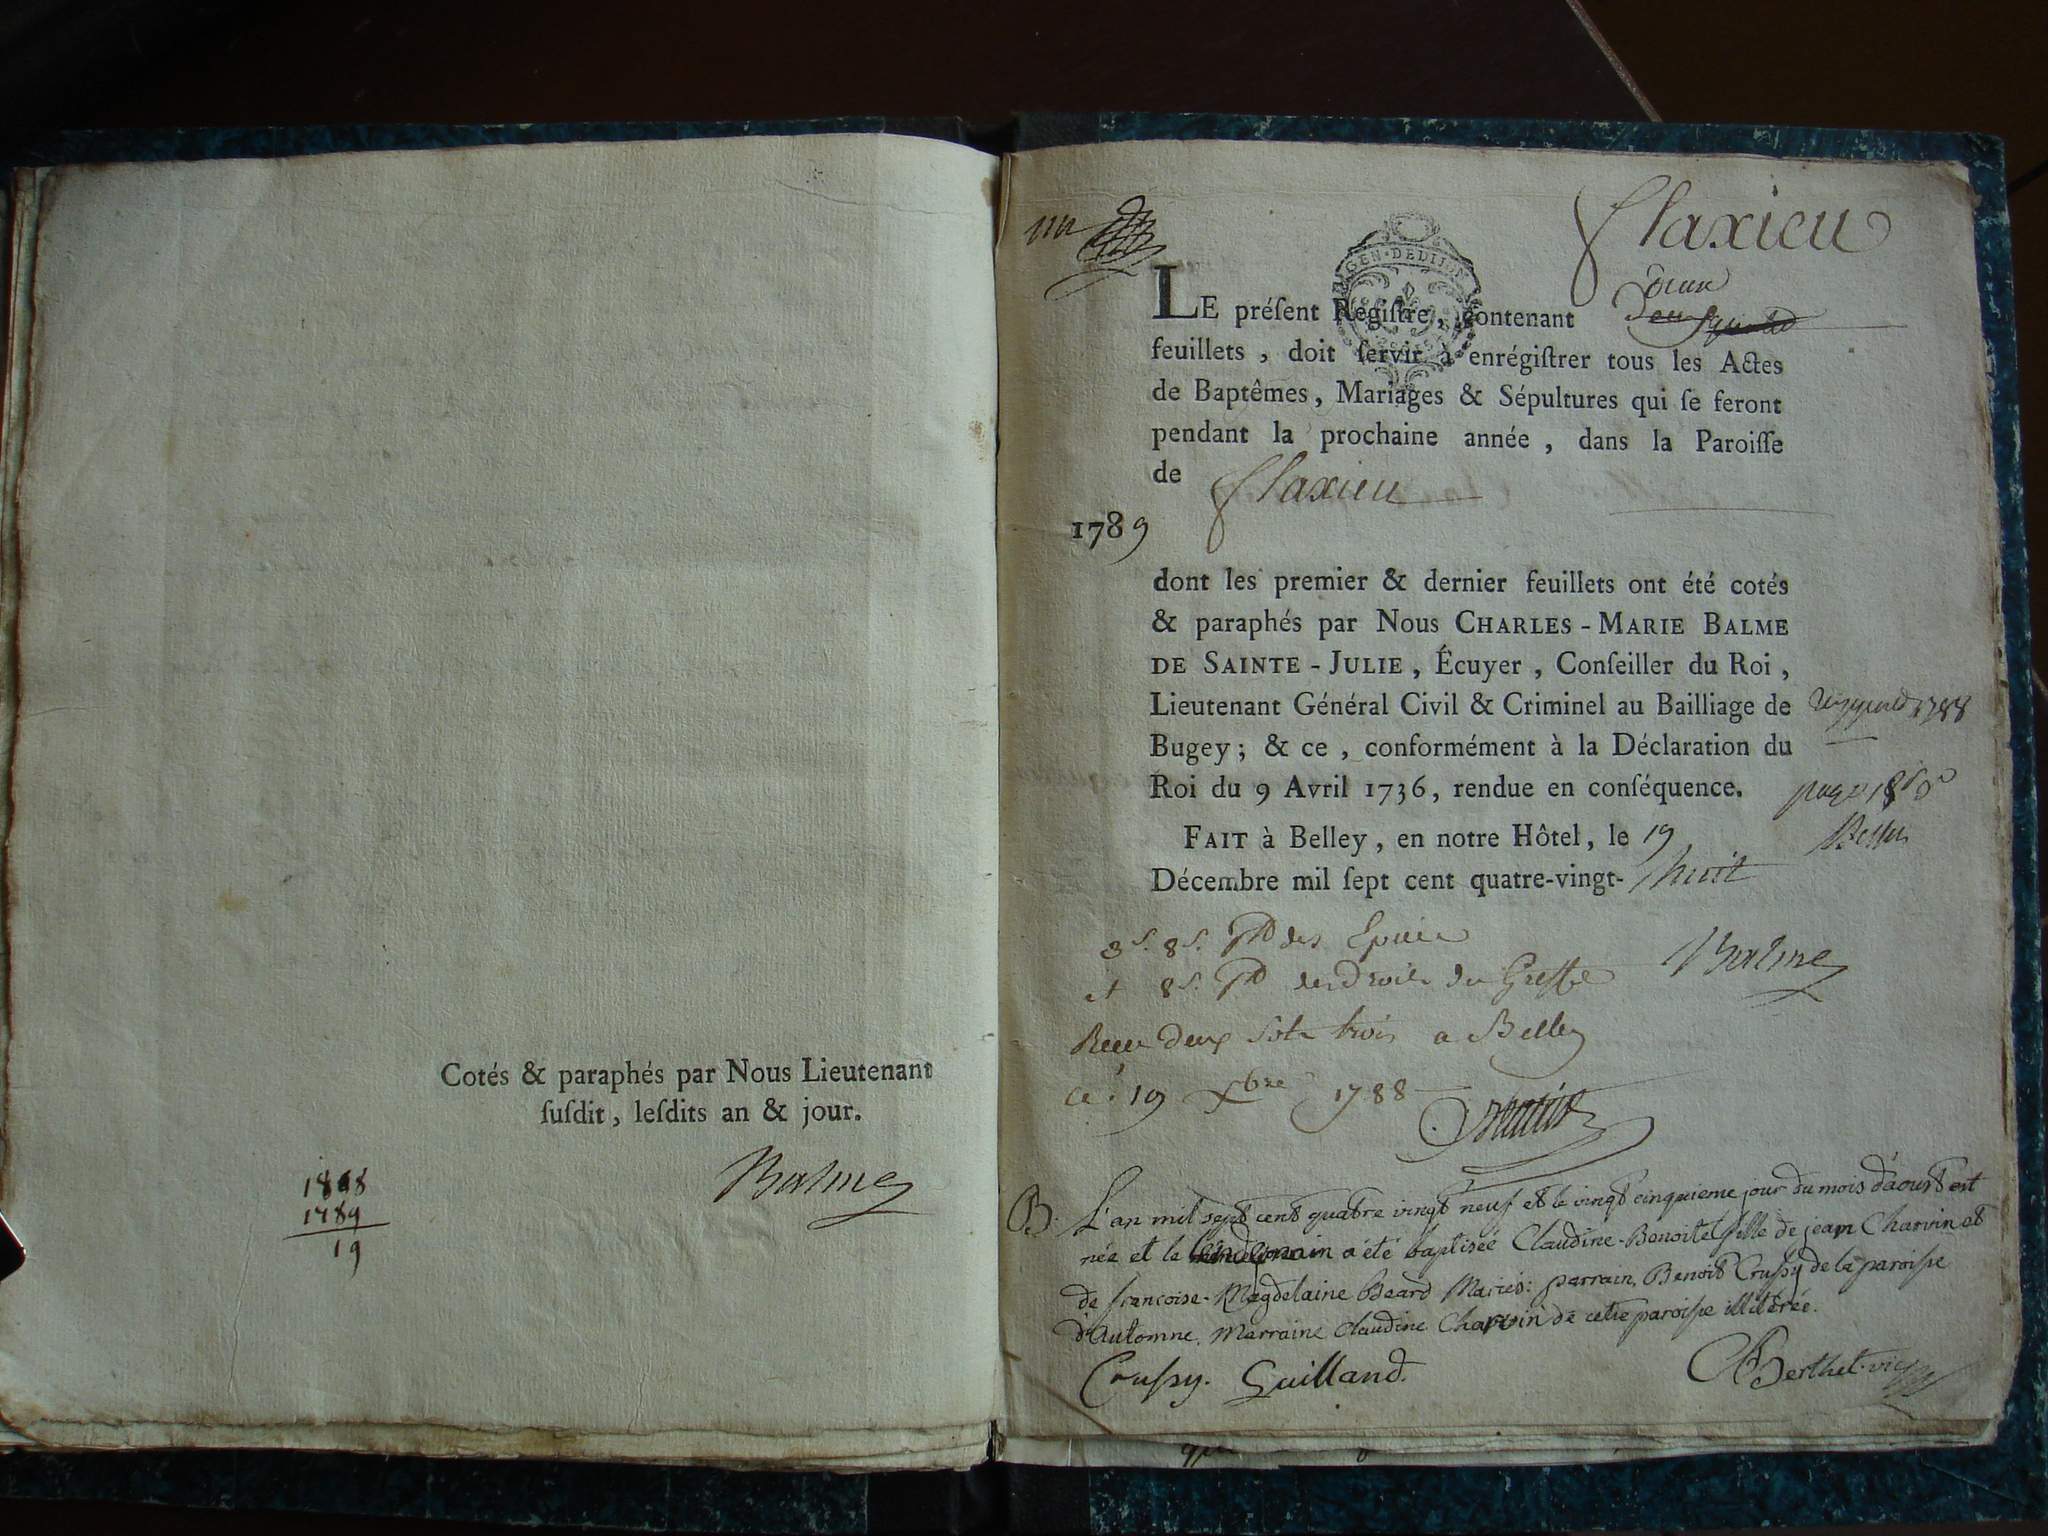 Cotés & paraphés par Nous Lieutenant
ſuſdit, leſdits an & jour.
Balme
1808
1789
19
un
Flaxieu
GEN·DEDIJON
LE préſent Regiſtre, contenant
feuillets, doit ſervir à enrégiſtrer tous les Actes
de Baptêmes, Mariages & Sépultures qui ſe feront
pendant la prochaine année, dans la Paroiſſe
de Flaxieu
1789
dont les premier & dernier feuillets ont été cotés
& paraphés par Nous CHARLES-MARIE BALME
DE SAINTE-JULIE, Écuyer, Conſeiller du Roi,
Lieutenant Général Civil & Criminel au Bailliage de
Bugey; & ce, conformément à la Déclaration du
Roi du 9 Avril 1736, rendue en conſéquence.
FAIT à Belley, en notre Hôtel, le 19
Décembre mil ſept cent quatre-vingt-huit
3 s. 8 d. des Epices
et 8 s. des Droits du Greffe
Balme
Receu deux sols trois a Belley
ce 19 Xbre 1788
B. L'an mil sept cent quatre vingt neuf et le vingt cinquieme jour du mois d'aoust est
née et le lendemain a été baptisée Claudine-Benoite fille de jean Charvin et
de francoise-Magdelaine Beard Mariés: parrain, Benoit Crussy de la paroisse
d'Automne, Marraine Claudine Charvin de cette paroisse illiterée.
Crussy. Guilland. Berthet vic